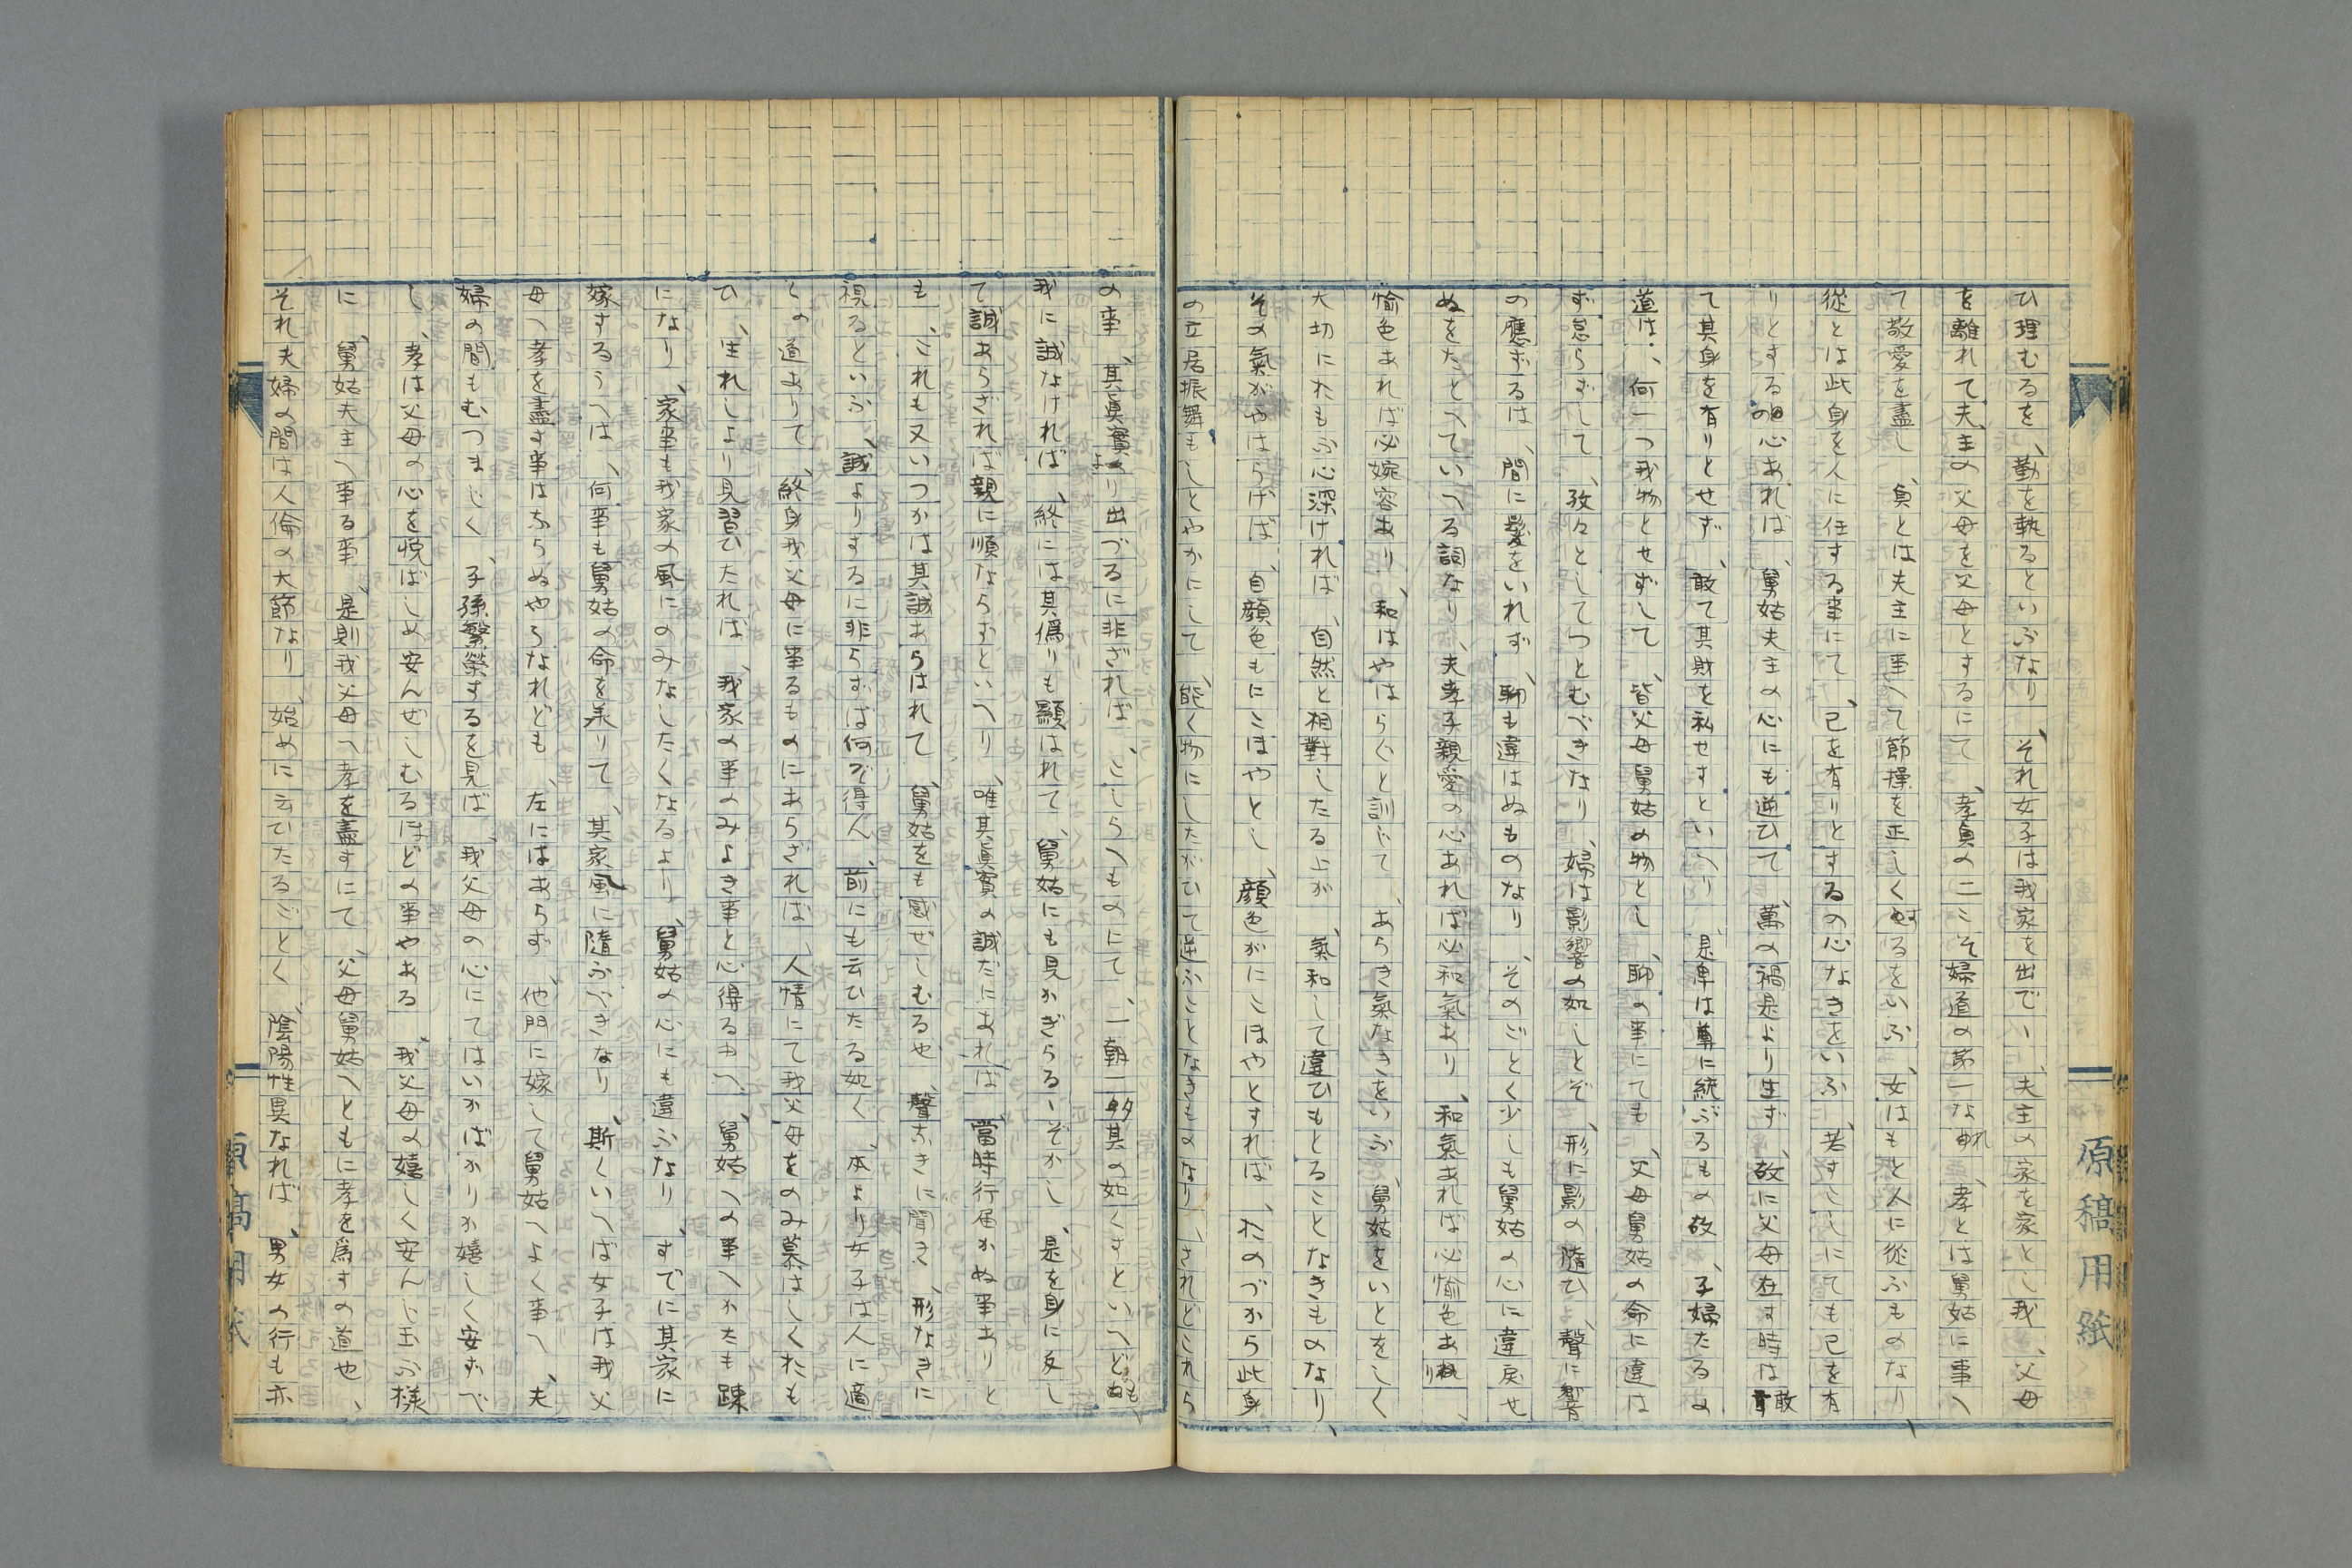 ひ理むるを、勤を執るといふなり、それ女子は我家を出でゝ、夫主の家を家とし我、父母
を離れて夫、主の父母を父母とするにて、孝貞の二こそ婦道の第一なれ、孝とは舅姑に事へ
て敬愛を盡し、貞とは夫主に事へて節操を正しくするをいふ、女はもと人に從ふものなり、
從とは此身を人に任する事にて、己を有りとするの心なきをいふ、若すこしにても己を有
りとするの心あれば、舅姑夫主の心にも逆ひて、萬の禍是より生ず、故に父母在す時は敢
て其身を有りとせず、敢て其財を私せずといへり、是卑は尊に統ぶるもの故、子婦たるの
道は、何一つ我物とせずして、皆父母舅姑の物とし、聊の事にても、父母舅姑の命に違は
ず怠らずして、孜々としてつとむべきなり、婦は影響の如しとぞ、形に影の隨ひ、聲に響
の應ずるは、間に髮をいれず、聊も違はぬものなり、そのごとく少しも舅姑の心に違戻せ
ぬをたとへていへる詞なり、夫孝子親愛の心あれば必和氣あり、和氣あれば必愉色あり、
愉色あれば必婉容あり、和はやはらぐと訓じて、あらき氣なきをいふ、舅姑をいとをしく
大切におもふ心深ければ、自然と相對したる上が、氣和して違ひもとることなきものなり、
その氣がやはらげば、自顔色もにこぼやとし、顔色がにこほやとすれば、おのづから此身
の立居振舞もしとやかにして、能く物にしたがひて逆ふことなきものなり、されどこれら
の事、其眞實より出づるに非ざれば、こしらへものにて、一朝一夕其の如くすといへども、
我に誠なければ、終には其僞りも顯はれて、舅姑にも見かぎらるゝぞかし、是を身に反し
て誠あらざれば親に順ならずといへり、唯其眞實の誠だにあれば、當時行届かぬ事ありと
も、これも又いつかは其誠あらはれて、舅姑をも感ぜしむるや、聲なきに聞き、形なきに
視るといふ、誠よりするに非らずば何ぞ得ん、前にも云ひたる如く、本より女子は人に適
くの道ありて、終身我父母に事るものにあらざれば、人情にて我父母をのみ慕はしくおも
ひ、生れしより見習ひたれば、我家の事のみよき事と心得るゆへ、舅姑への事へかたも踈
になり、家事も我家の風にのみなしたくなるより、舅姑の心にも違ふなり、すでに其家に
嫁するうへは、何事も舅姑の命を承りて、其家風に隨ふべきなり、斯くいへば女子は我父
母へ孝を盡す事はならぬやうなれども、左にはあらず、他門に嫁して舅姑へよく事へ、夫
婦の間もむつまじく、子孫繁榮するを見ば、我父母の心にてはいかばかりか嬉しく安ずべ
し、孝は父母の心を悦ばしめ安んぜしむるほどの事やある、我父母の嬉しく安んじ玉ふ樣
に、舅姑夫主へ事る事、是則我父母へ孝を盡すにて、父母舅姑へともに孝を爲すの道也、
それ夫婦の間は人倫の大節なり、始めに云ひたるごとく、陰陽性異なれば、男女の行も亦
原稿用紙
原稿用紙